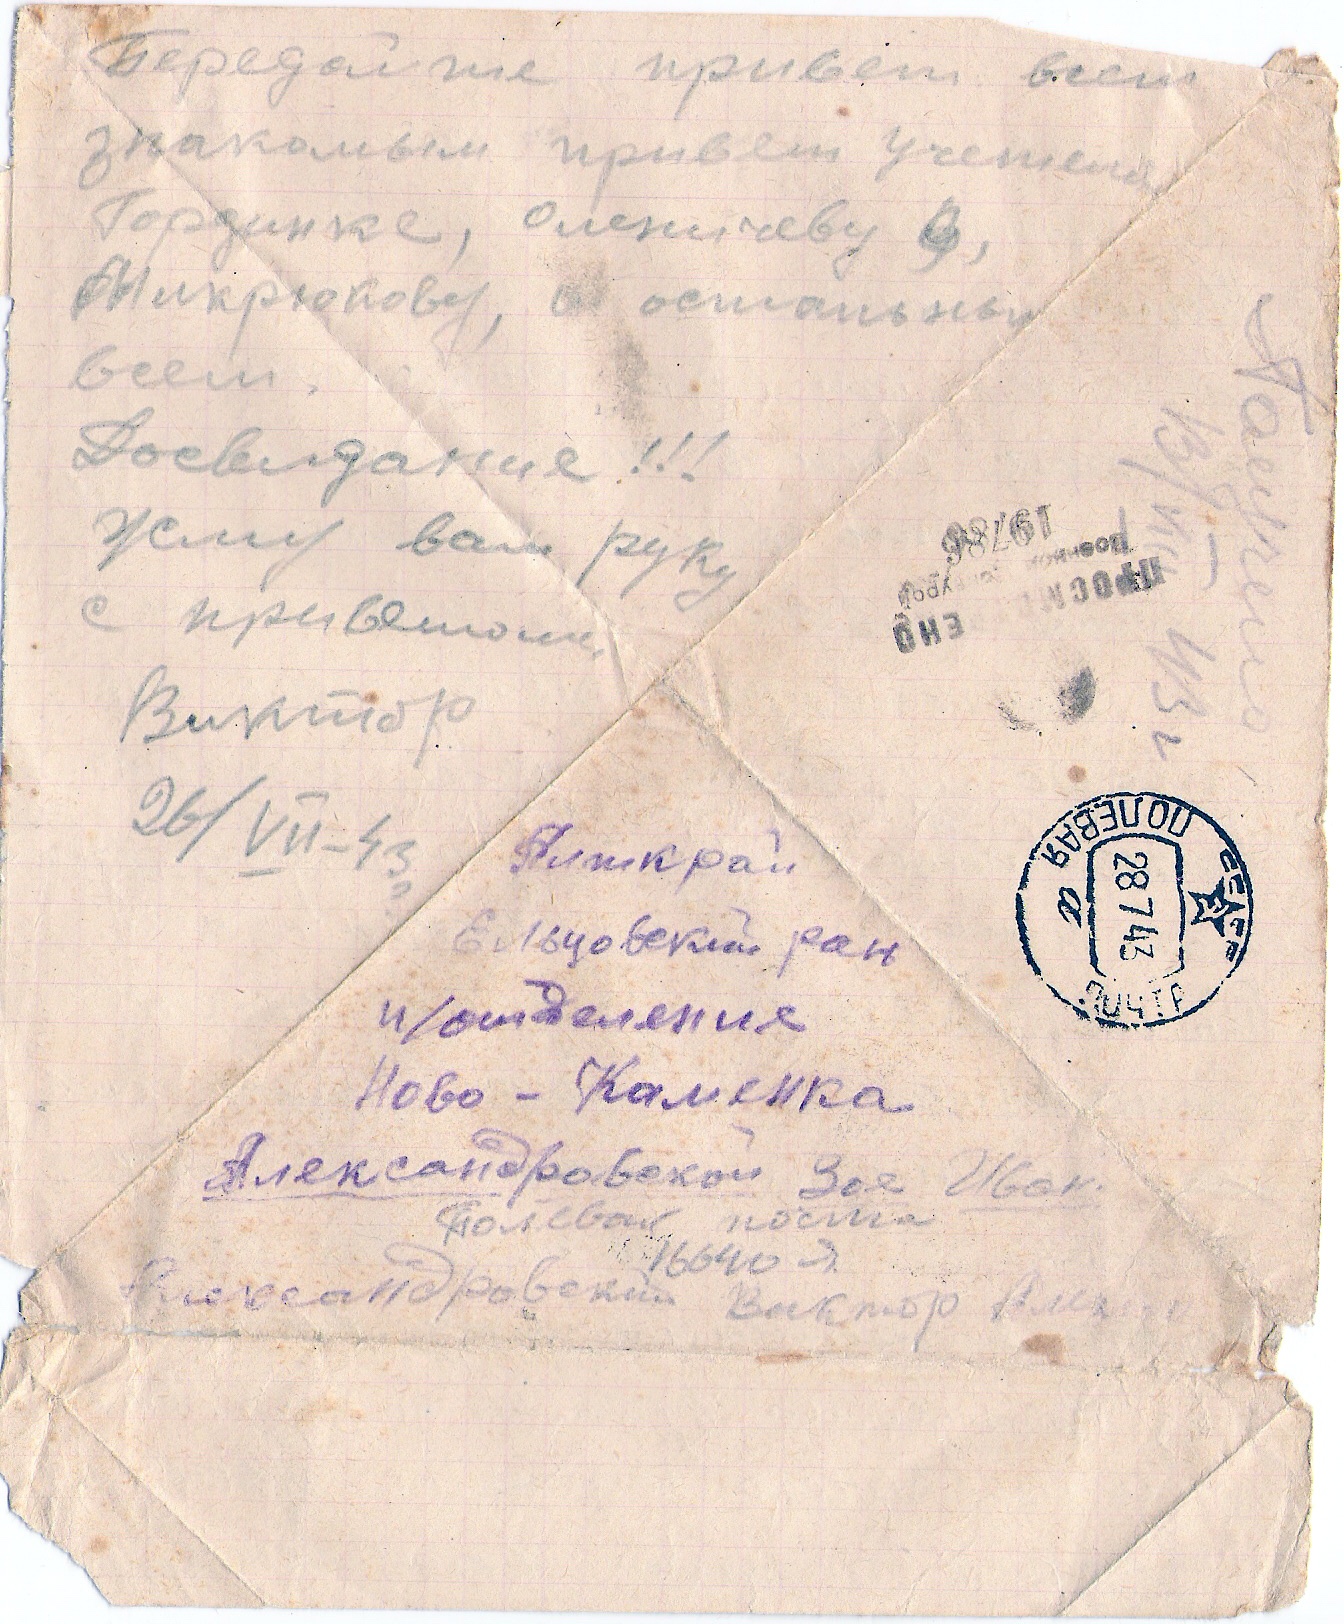 Передайте привет всем
знакомым привет учителя
Гординке, Оленичеву В,
Микрюкову, и остальным
всем.
Досвидания!!!
Жму вам руку
с приветом,
Виктор
26/VII-43
Алткрай
Ельцовский ран
п/отделения
Ново - Каменка
Александровской Зое Иван.
Полевая почта
16640 Я
Александровский Виктор
Получено
43 г
ПРОСМОТРЕНО
Военной Цензурой
19786
СССР
ПОЛЕВАЯ
28 7 43
а
ПОЧТА